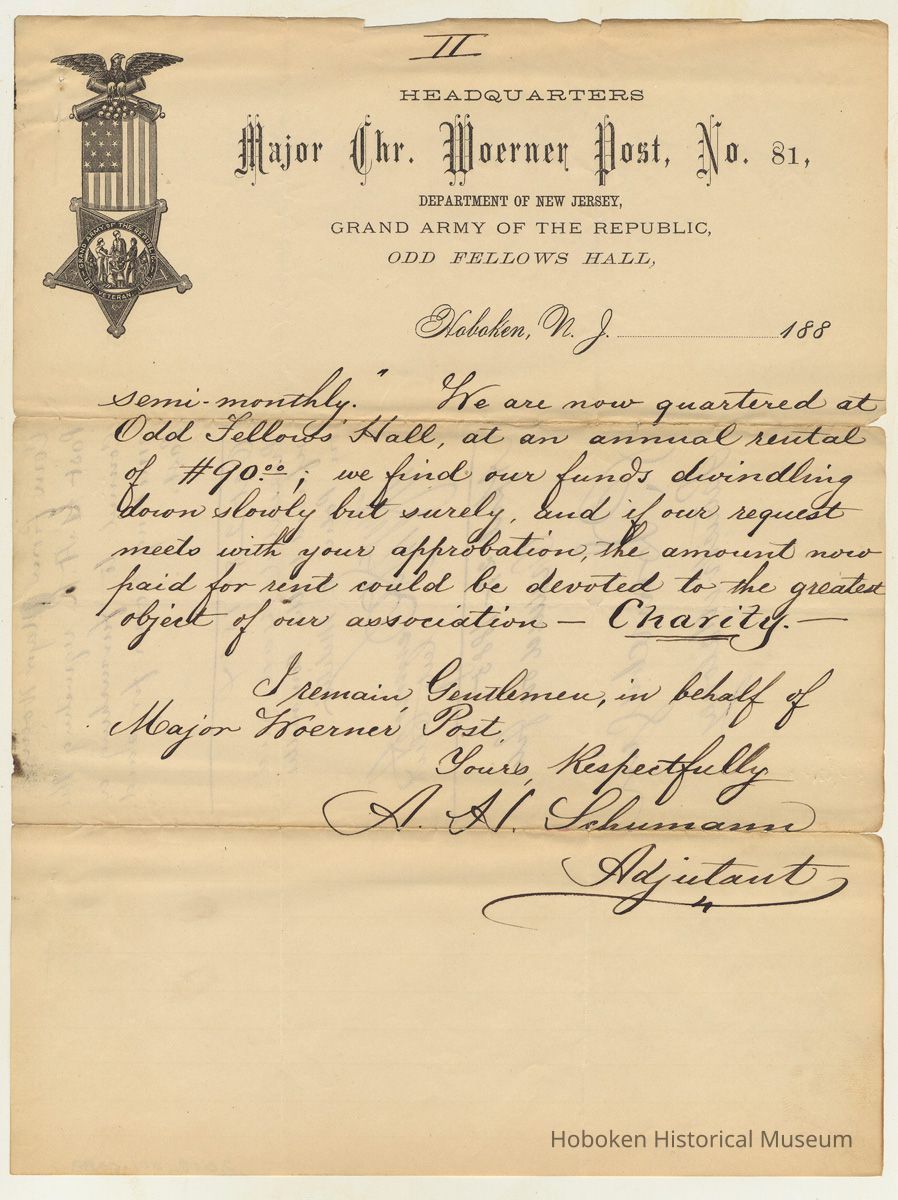 II
HEADQUARTERS
Major Chr. Woerner Post, No. 81,
DEPARTMENT OF NEW JERSEY,
GRAND ARMY OF THE REPUBLIC,
ODD FELLOWS HALL,
GRAND ARMY OF THE REPUBLIC
1861 VETERAN 1866
Hoboken, N. J. 188
semi-monthly." We are now quartered at
Odd Fellows' Hall, at an annual rental
of $90.00; we find our funds dwindling
down slowly but surely, and if our request
meets with your approbation, the amount now
paid for rent could be devoted to the greatest
object of our association — Charity. —
I remain, Gentlemen, in behalf of
Major Woerner Post,
Yours, Respectfully
A. H. Schumann
Adjutant
Hoboken Historical Museum